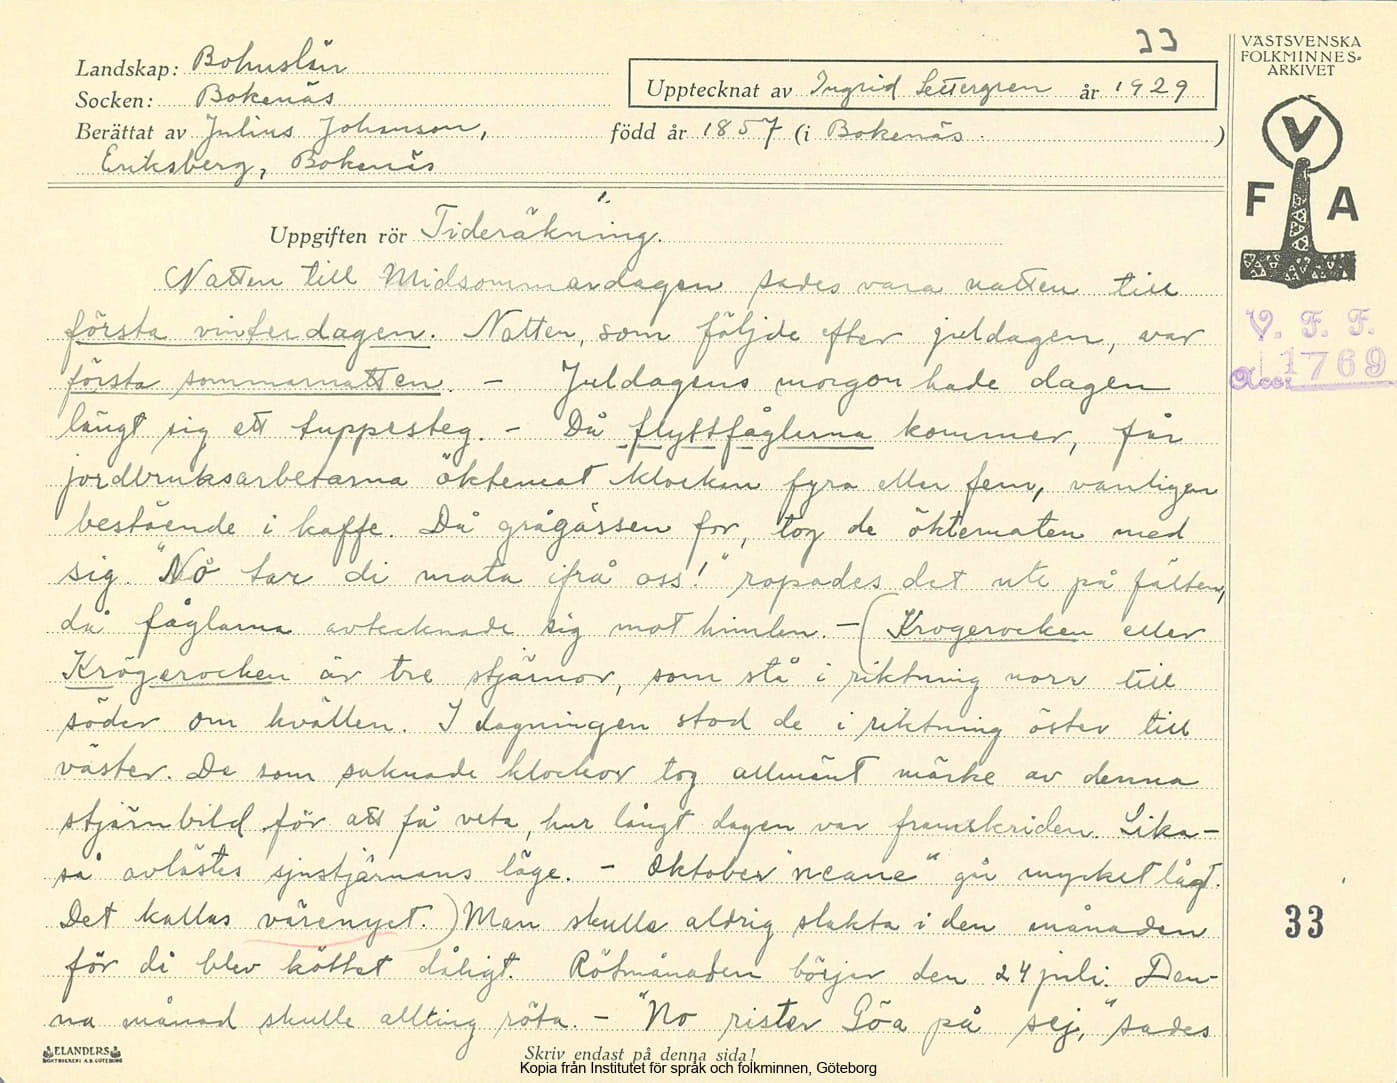 33
VÄSTSVENSKA
FOLKMINNES-
ARKIVET
Landskap: Bohuslän
Socken: Bokenäs
Upptecknat av Ingrid Settergren år 1929
Berättat av Julius Johanson, född år 1857 (i Bokenäs.)
Eriksberg, Bokenäs
V
F A
Uppgiften rör Tideräkning.
Natten till Midsommardagen sades vara natten till
första vinterdagen. Natten, som följde efter juldagen, var
första sommarnatten. – Juldagens morgon hade dagen
längt sig ett tuppesteg. – Då flyttfåglerna kommer, får
jordbruksarbetarna öktemat klockan fyra eller fem, vanligen
bestående i kaffe. Då grågässen for, tog de öktematen med
sig. "Nô tar di mata ifrå oss!" ropades det ute på fälten,
då fåglarna avtecknade sig mot himlen. – (Krogerocken eller
Krögerocken är tre stjärnor, som stå i riktning norr till
söder om kvällen. I dagningen stod de i riktning öster till
väster. De som saknade klockor tog allmänt märke av denna
stjärnbild för att få veta, hur långt dagen var framskriden. Lika-
så avlästes sjustjärnans läge. – Oktober "neane" går mycket lågt.
Det kallas värenyet.) Man skulle aldrig slakta i den månaden
för di blev köttet dåligt. Rötmånaden börjar den 24 juli. Den-
na månad skulle allting röta. – "No rister Göa på sej," sades
V. F. F.
Acc. 1769
33
ELANDERS
BOKTRYCKERI A.B. GÖTEBORG
Skriv endast på denna sida!
Kopia från Institutet för språk och folkminnen, Göteborg